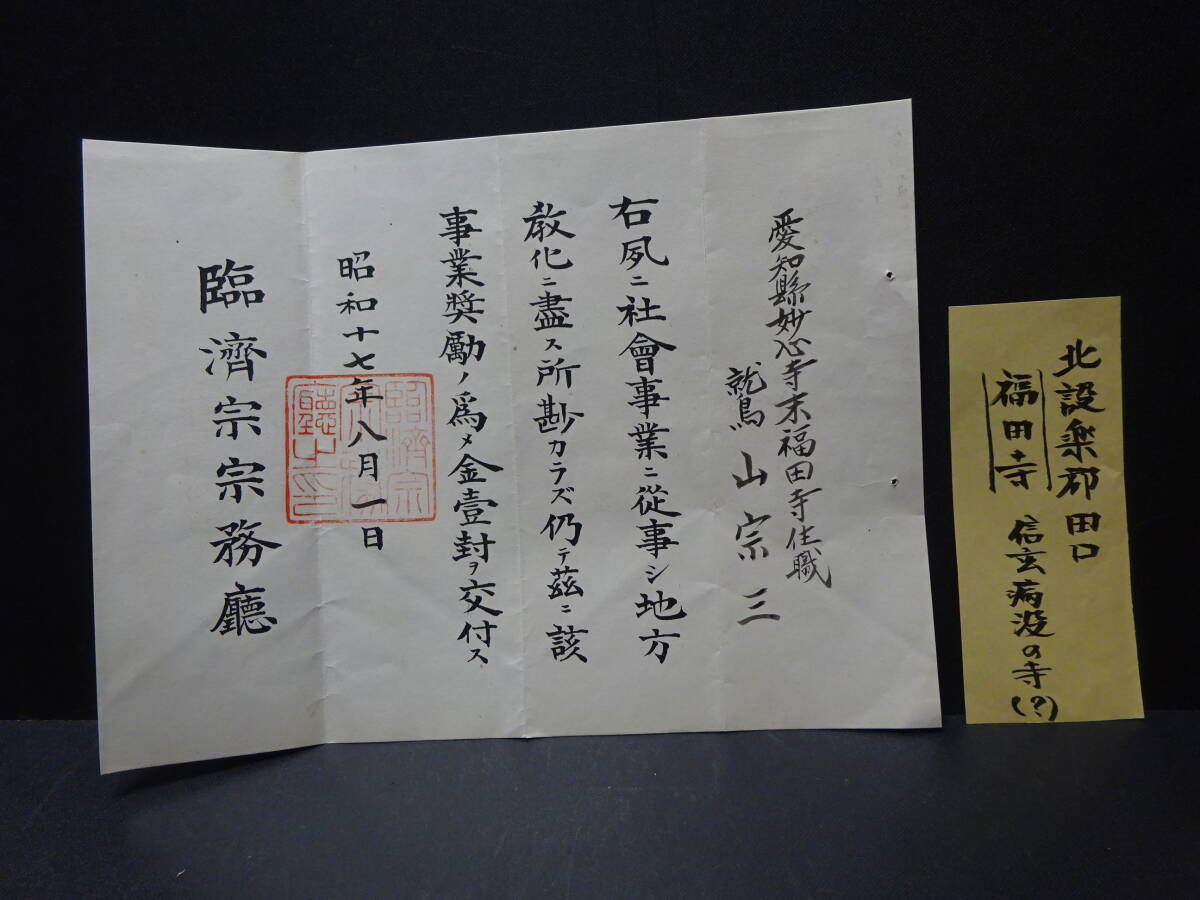 愛知縣妙心寺末福田寺住職
鷲山宗三
右夙ニ社會事業ニ從事シ地方
敎化ニ盡ス所尠カラズ仍テ茲ニ該
事業奬勵ノ爲メ金壹封ヲ交付ス
昭和十七年八月一日
臨濟宗宗務廳
臨濟宗宗務廳之印
北設楽郡田口
福田寺 信玄病没の寺(?)